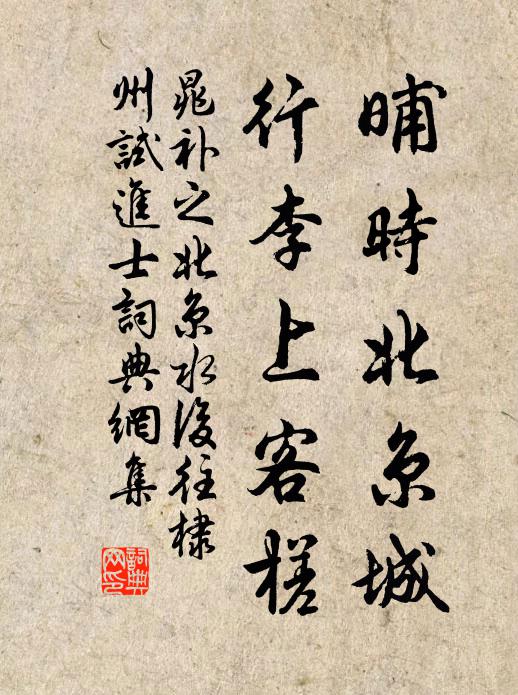 晡時北京城
行李上客槎
晁补之北京水後往棣
州試進士詞典網集
詞典
网印